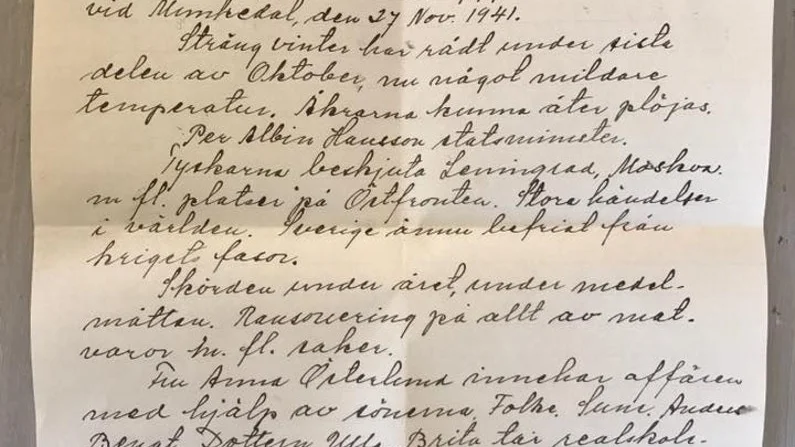 vid Munkedal, den 27 Nov. 1941.
Sträng vinter har rådt under sista
delen av Oktober, nu något mildare
temperatur. Åkrarna kunna åter plöjas.
Per Albin Hansson statsminister.
Tyskarna beskjuta Leningrad, Moskva.
m fl. platser på Östfronten. Stora händelser
i världen. Sverige ännu befriat från
krigets fasor.
Skörden under året, under medel-
måttan. Ransonering på allt av mat-
varor m. fl. saker.
Fru Anna Österlund innehar affären
med hjälp av sönerna, Folke, Sune, Anders
Bengt. Dottern Ulla Brita tar realskol-